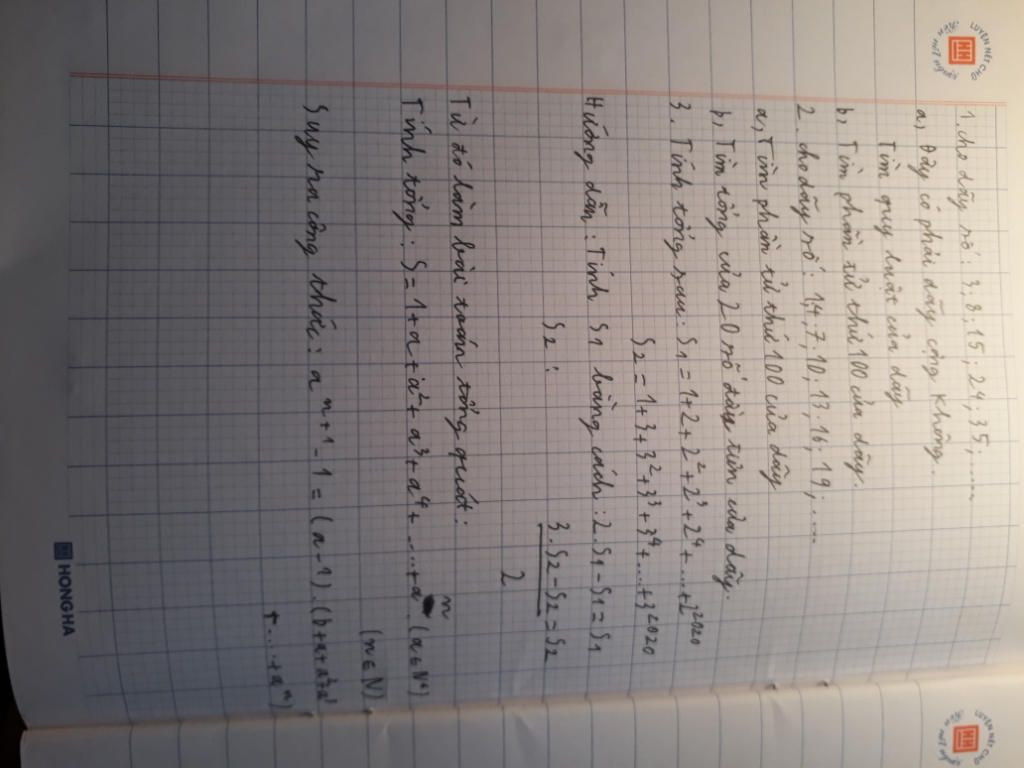 1. cho dãy số: 3; 8; 15; 24; 35; .....
a, Dãy có phải dãy cộng không.
Tìm quy luật của dãy
b, Tìm phần tử thứ 100 của dãy.
2. cho dãy số: 1; 4; 7; 10; 13; 16; 19; ....
a, Tìm phần tử thứ 100 của dãy
b, Tìm tổng của 20 số đầu tiên của dãy.
3. Tính tổng sau: S1 = 1+2+2²+2³+2⁴+....+2²⁰²⁰
S2 = 1+3+3²+3³+3⁴+....+3²⁰²⁰
Hướng dẫn: Tính S1 bằng cách: 2.S1-S1=S1
S2: 3.S2-S2=S2
2
Từ đó làm bài toán tổng quát:
Tính tổng: S=1+a+a²+a³+a⁴+....+aⁿ (a∈N*)
(n∈N)
Suy ra công thức: aⁿ⁺¹-1=(a-1).(1+a+a²+a³
+....+aⁿ)
LUYỆN NÉT CHỮ
HH
LUYỆN NÉT CHỮ
HH
HONGHA